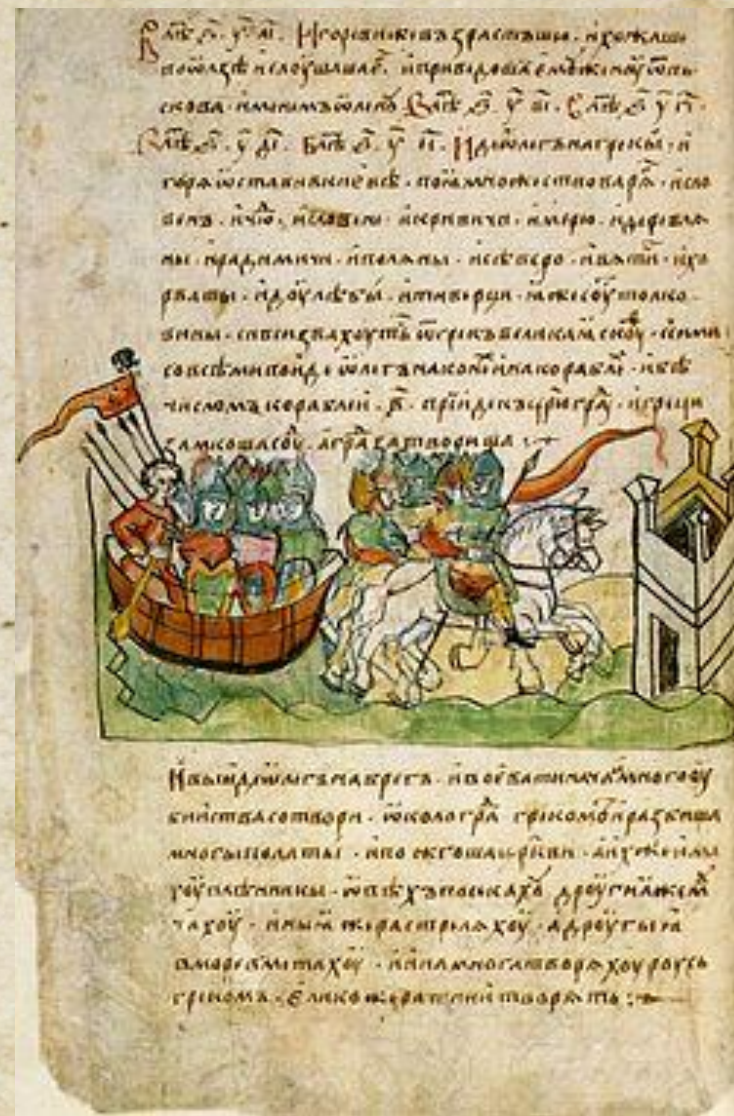 В лѣⷮ ҂ѕ҃ у҃ а҃і Игореви же възрастъшю и хожаше
по ѡлзѣ и слоушаше҇ и приведоша емоу женоу ѿ пь
скова именемъ ѡленоу В лѣⷮ ҂ѕ҃ у҃ в҃і В лѣⷮ ҂ѕ҃ у҃ г҃і
В лѣⷮ ҂ѕ҃ у҃ д҃і В лѣⷮ ҂ѕ҃ у҃ е҃і Иде ѡлегъ на грекы и
горѧ ѡставивъ киевѣ поиⷨ множество варѧⷢ и сло
венъ и чюⷣ и словени и кривичи и мерю и деревлѧ
ны и радимичи и полѧны и сѣверо и вѧтиⷱ и хо
рваты и доулѣбы и тиверци ꙗже соуть толко
вины си вси звахоутьⷭ ѿ грекъ великаꙗ скоуⷴ и сими
со всѣми поиде ѡлегъ на конеⷯ и на кораблеⷯ и бѣ
числомъ кораблеи в҃ прииде къ цр҃югра҃ⷣ и греци
замкоша соуⷣ а граⷣ затвориша
И выиде ѡлегъ на брегъ и воевати нача и много оу
бииства сотвори ѡколо граⷣ грекоⷨ и разбиша
многы полаты и пожгоша цр҃кви а ихже имѧ
хоу плѣнникы ѡвѣхъ посѣкахоⷹ дроугиꙗ же мⷱ
чахоу иныꙗ же растрелѧхоу а дроугыꙗ
в море вметахоу и ина многа творѧхоу роусь
грекомъ елико же ратнии творѧть